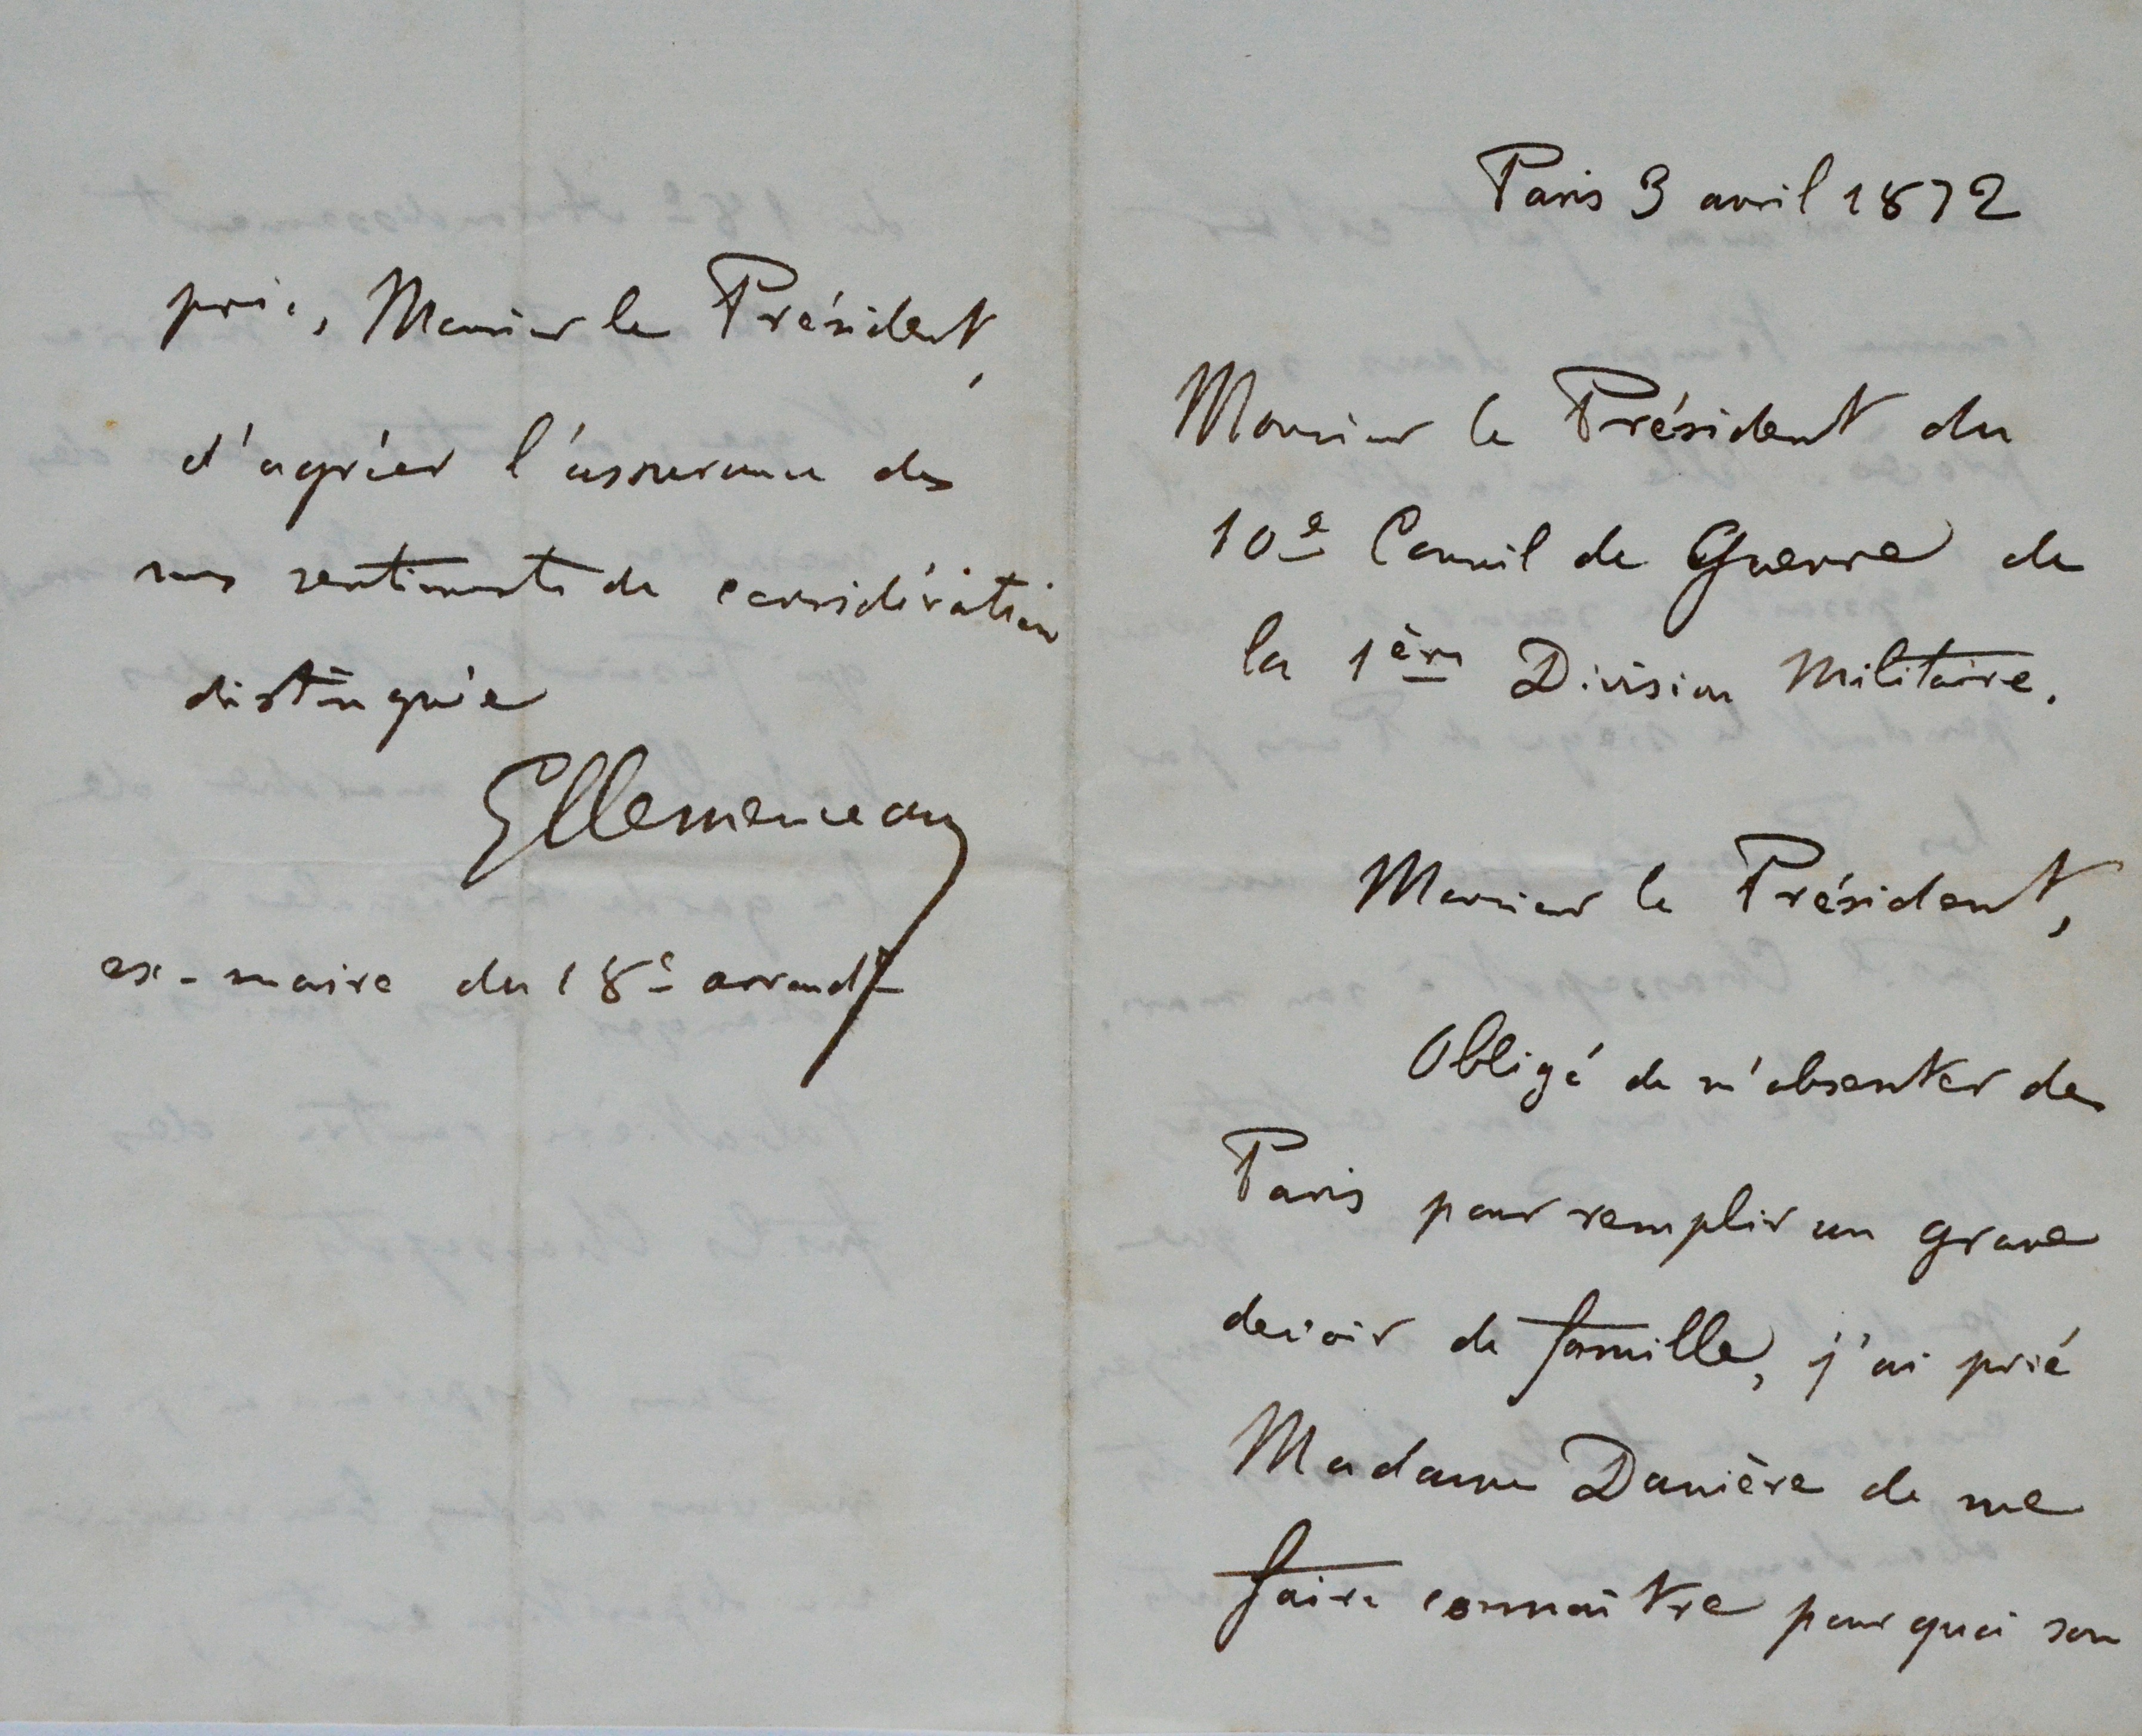 Paris 3 avril 1872
Monsieur le Président du
10e Conseil de Guerre de
la 1ère Division Militaire.
Monsieur le Président,
Obligé de m'absenter de
Paris pour remplir un grave
devoir de famille, j'ai prié
Madame Danière de me
faire connaître pourquoi son
prie, Monsieur le Président,
d'agréer l'assurance de
mes sentiments de considération
distinguée
GClemenceau
ex-maire du 18e arrondt